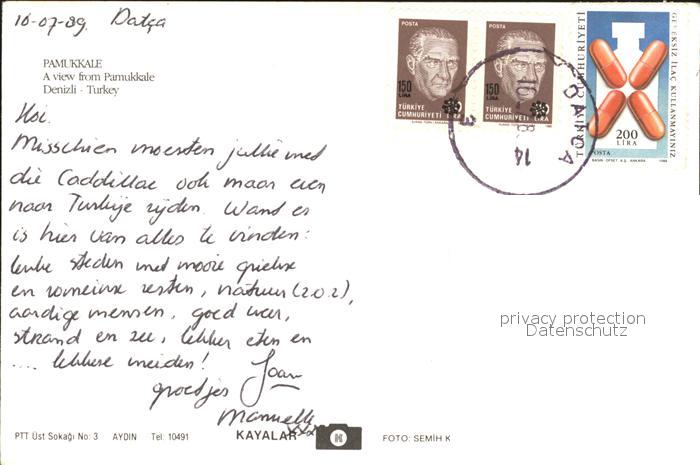 16-07-89. Datça
PAMUKKALE
A view from Pamukkale
Denizli - Turkey
Hoi.
Misschien moesten jullie met
die Caddillac ook maar een
naar Turkije rijden. Want er
is hier van alles te vinden:
leuke steden met mooie griekse
en romeinse resten, natuur (z.o.z),
aardige mensen, goed weer,
strand en zee, lekker eten en
.... lekkere meiden!
groetjes
Joan
Manuelle
xxx
POSTA
150
LİRA
TÜRKİYE
CUMHURİYETİ LİRA
POSTA
150
LİRA
TÜRKİYE
CUMHURİYETİ LİRA
TÜRKİYE CUMHURİYETİ
GEREKSİZ İLAÇ KULLANMAYINIZ
200
LİRA
POSTA
BASIN: OFSET. A.Ş. ANKARA
DATÇA
14
privacy protection
Datenschutz
PTT Üst Sokağı No: 3 AYDIN Tel: 10491 KAYALAR K FOTO: SEMİH K